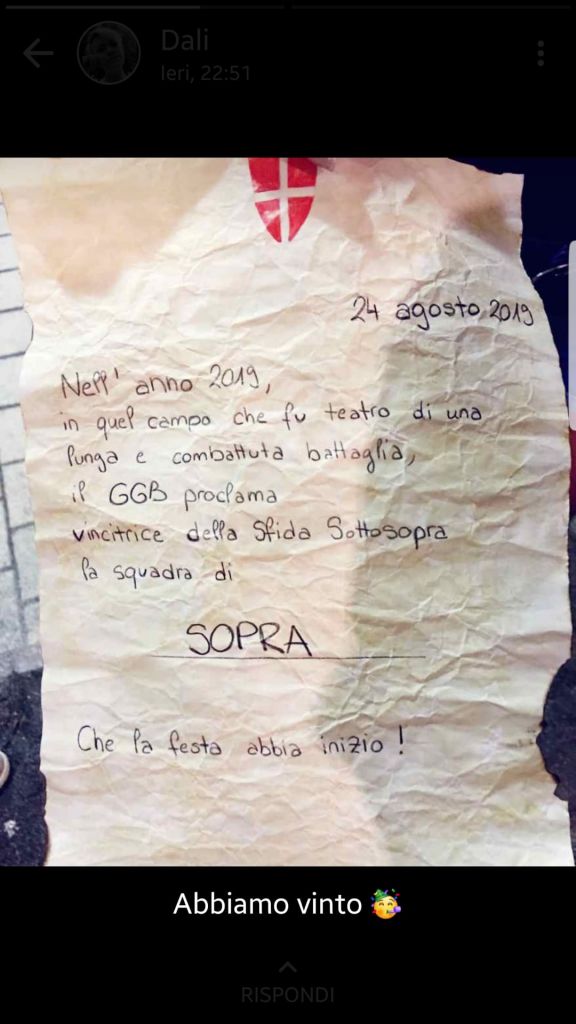 Dali
Ieri, 22:51
24 agosto 2019
Nell' anno 2019,
in quel campo che fu teatro di una
lunga e combattuta battaglia,
il GGB proclama
vincitrice della Sfida Sottosopra
la squadra di
SOPRA
Che la festa abbia inizio !
Abbiamo vinto 🥳
RISPONDI